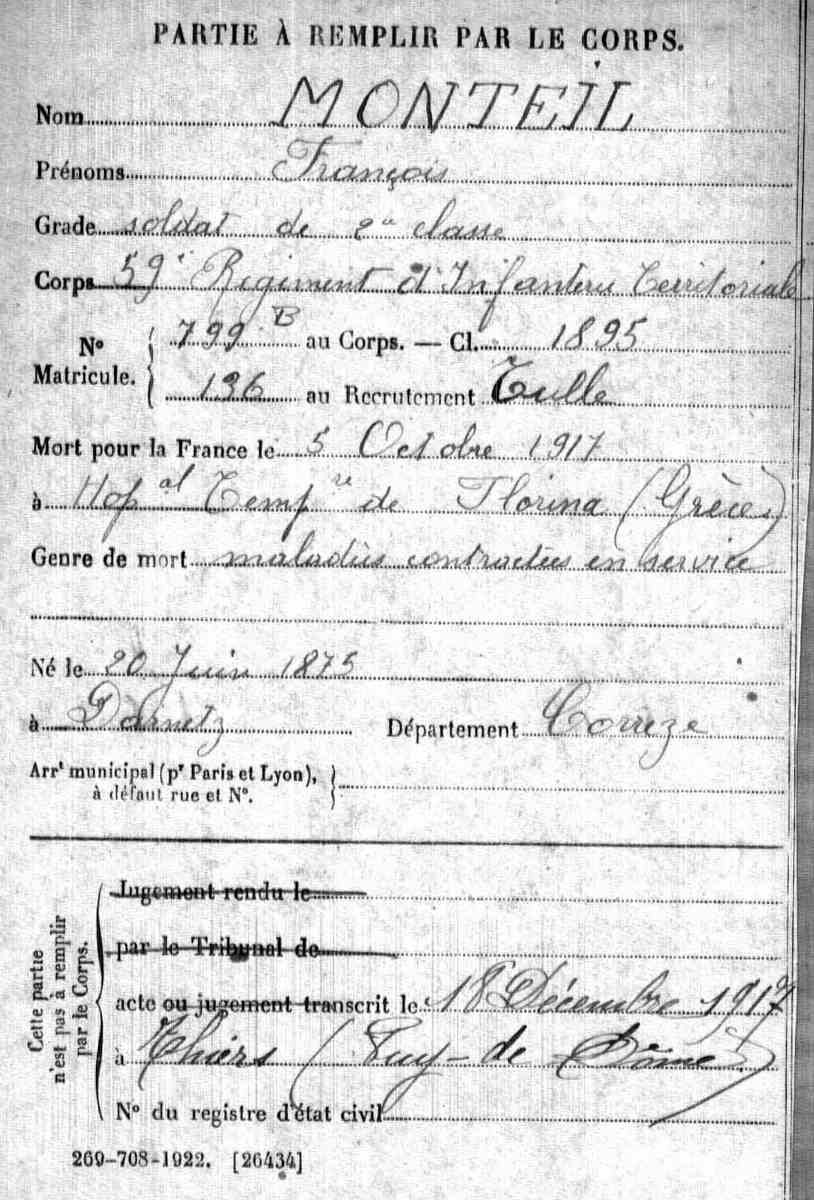 PARTIE À REMPLIR PAR LE CORPS.
Nom MONTEIL
Prénoms François
Grade soldat de 2e classe
Corps 59e Régiment d'Infanterie Territoriale
No Matricule. 799 B au Corps. — Cl. 1895
136 au Recrutement Tulle
Mort pour la France le 5 Octobre 1917
à Hopal Tempre de Florina (Grèce)
Genre de mort maladies contractées en service
Né le 20 Juin 1875
à Darnetz Département Corrèze
Arrt municipal (pr Paris et Lyon),
à défaut rue et No.
Cette partie
n'est pas à remplir
par le Corps.
Jugement rendu le
par le Tribunal de
acte ou jugement transcrit le 18 Décembre 1917
à Thiers (Puy-de Dôme)
No du registre d'état civil
269-708-1922. [26434]